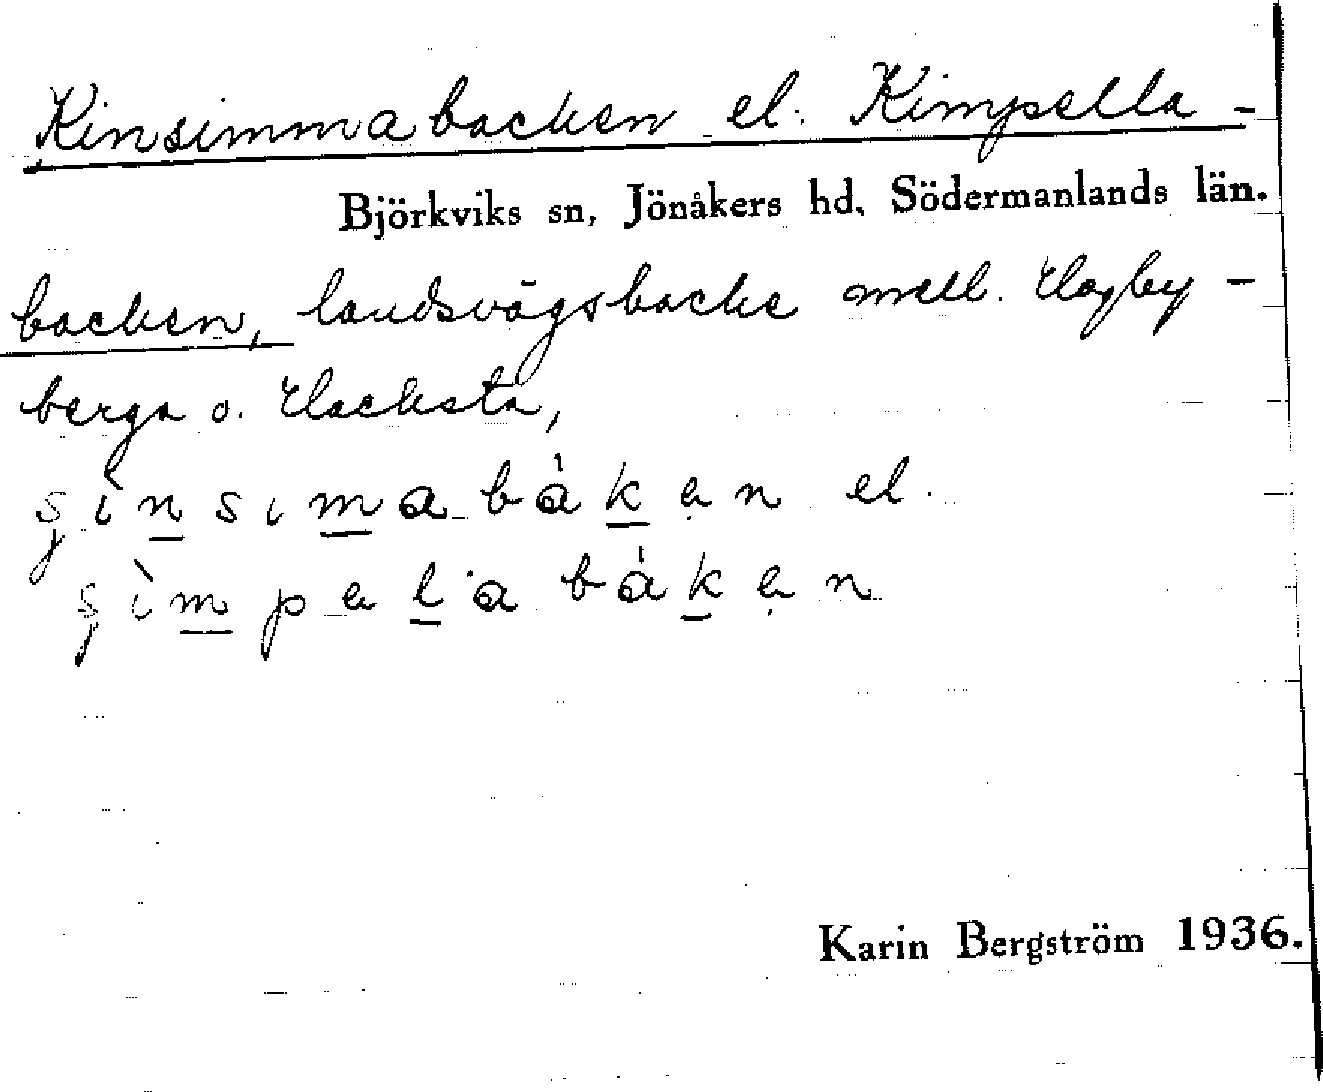 Kinsimmabacken el. Kimpella-
Björkviks sn, Jönåkers hd, Södermanlands län.
backen, landsvägsbacke mell. Hagby-
berga o. Hacksta,
s̨ìnsımabákən el.
s̨ìmpelabákən
Karin Bergström 1936.